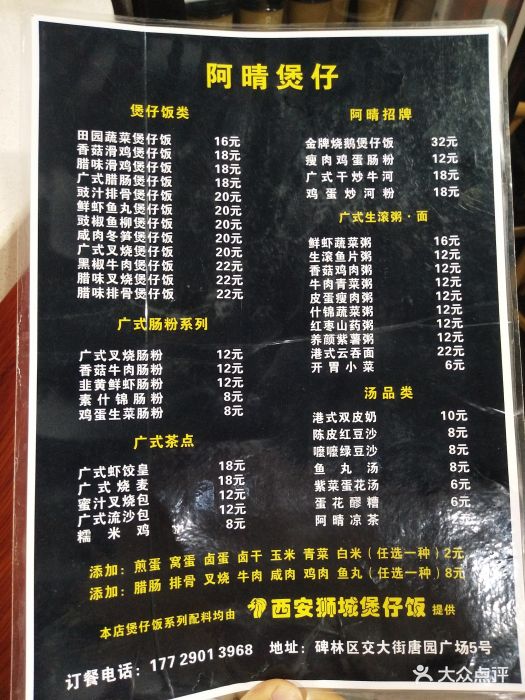 阿晴煲仔
煲仔饭类
田园蔬菜煲仔饭 16元
香菇滑鸡煲仔饭 18元
腊味滑鸡煲仔饭 18元
广式腊肠煲仔饭 18元
豉汁排骨煲仔饭 20元
鲜虾鱼丸煲仔饭 20元
豉椒鱼柳煲仔饭 20元
咸肉冬笋煲仔饭 20元
广式叉烧煲仔饭 20元
黑椒牛肉煲仔饭 22元
腊味叉烧煲仔饭 22元
腊味排骨煲仔饭 22元
广式肠粉系列
广式叉烧肠粉 12元
香菇牛肉肠粉 12元
韭黄鲜虾肠粉 12元
素什锦肠粉 8元
鸡蛋生菜肠粉 8元
广式茶点
广式虾饺皇 18元
广式烧麦 18元
蜜汁叉烧包 12元
广式流沙包 12元
糯米鸡 8元
阿晴招牌
金牌烧鹅煲仔饭 32元
瘦肉鸡蛋肠粉 12元
广式干炒牛河 18元
鸡蛋炒河粉 18元
广式生滚粥·面
鲜虾蔬菜粥 16元
生滚鱼片粥 12元
香菇鸡肉粥 12元
牛肉青菜粥 12元
皮蛋瘦肉粥 12元
什锦蔬菜粥 12元
红枣山药粥 12元
养颜紫薯粥 12元
港式云吞面 22元
开胃小菜 6元
汤品类
港式双皮奶 10元
陈皮红豆沙 8元
嚤嚤绿豆沙 8元
鱼丸汤 8元
紫菜蛋花汤 6元
蛋花醪糟 6元
阿晴凉茶 2元
添加：煎蛋 窝蛋 卤蛋 卤干 玉米 青菜 白米（任选一种）2元
添加：腊肠 排骨 叉烧 牛肉 咸肉 鸡肉 鱼丸（任选一种）8元
本店煲仔饭系列配料均由 西安狮城煲仔饭 提供
订餐电话：177 2901 3968 地址：碑林区交大街唐园广场5号
大众点评